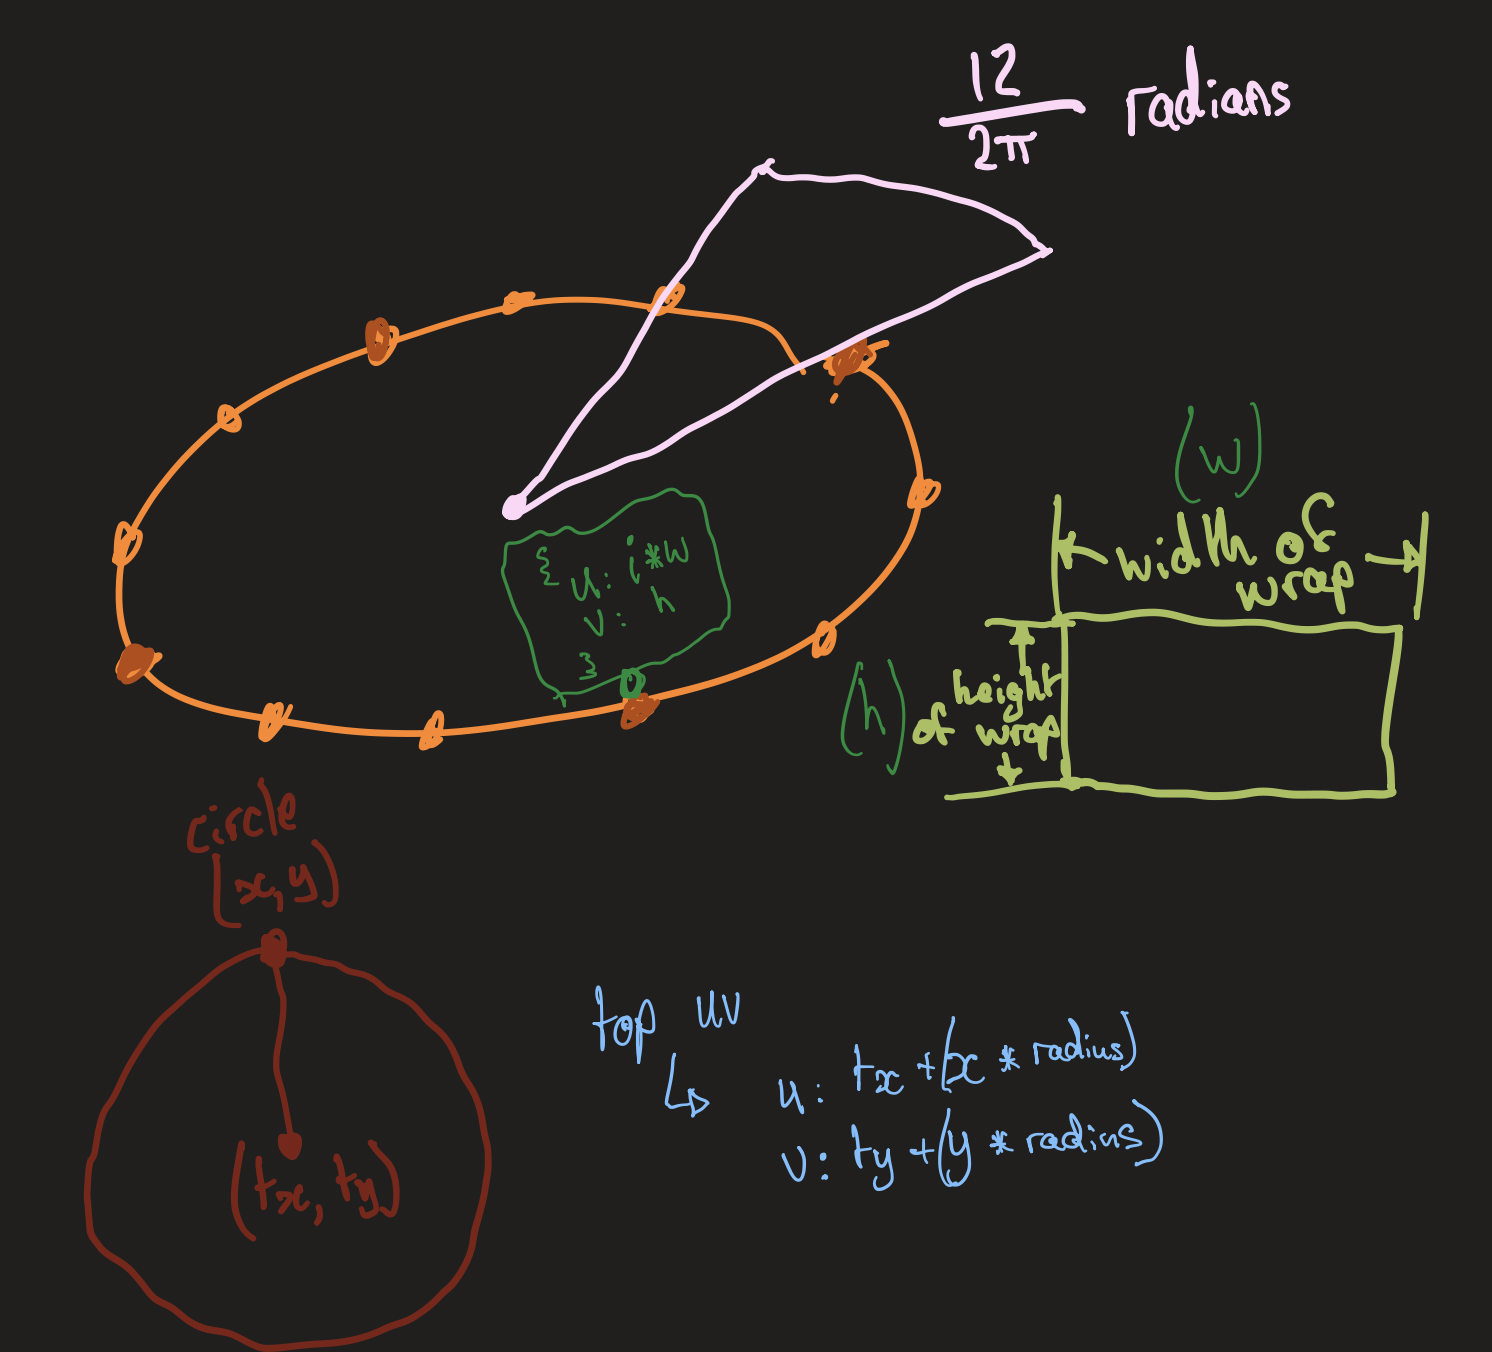 12
2π
radians
(w)
width of
wrap
{
u: i*w
v: h
}
(h)
height
of wrap
circle
(x,y)
(tx, ty)
top uv
u: tx + (x * radius)
v: ty + (y * radius)